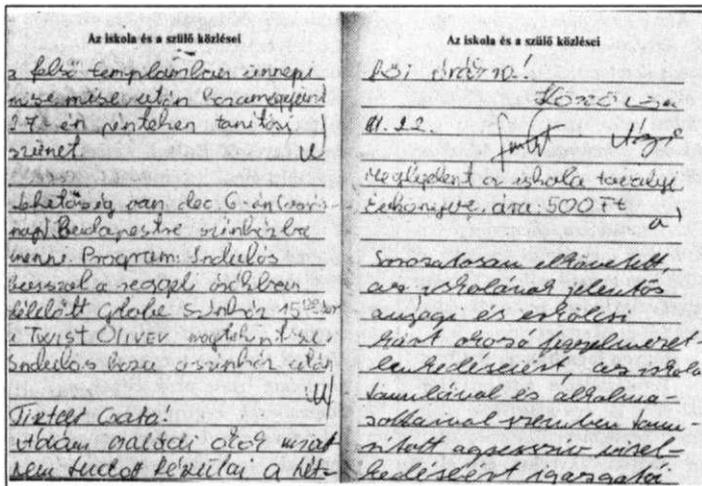 Az iskola és a szülő közlései
a felső templomban ünnepi
mise mise után hazamegyünk
27-én pénteken tanítási
szünet.
Lehetőség van dec. 6-án
nap) Budapestre színházba
menni. Program: Indulás
busszal a reggeli órákban
délelőtt színház 15
a TWIST OLIVER megtekintése
Indulás haza a színház után
Tisztelt Csaba!
Ádám családi okok miatt
nem tudott készülni a hét-
Az iskola és a szülő közlései
fői órára!
Köszönöm
22.
Megjelent a iskola tavalyi
Évkönyve, ára: 500 Ft
Sorozatosan elkövetett,
az iskolának jelentős
anyagi és erkölcsi
kárt okozó fegyelmezet-
lenkedéséért az iskola
tanulóival és alkalma-
zottaival szemben tanu-
sított agresszív visel-
kedéséért igazgatói